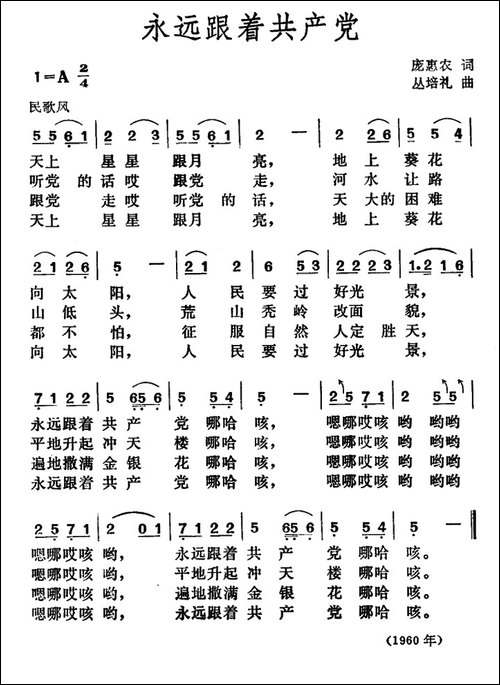 永远跟着共产党
1=A 2/4
庞惠农 词
丛培礼 曲
民歌风
5561 | 2 2 3 | 5561 | 2 — | 2 26 | 5 5 4 |
天上 星星 跟月 亮, 地上 葵花
听党 的话哎 跟党 走, 河水 让路
跟党 走哎 听党的 话, 天大的 困难
天上 星星 跟月 亮, 地上 葵花
21 26 | 5 — | 21 2 | 6 53 | 2223 | 1.2 16 |
向太 阳, 人民要过 好光 景,
山低 头, 荒山秃岭 改面 貌,
都不 怕, 征服自然 人定胜 天,
向太 阳, 人民要过 好光 景,
7122 | 5 656 | 5 54 | 5 — | 2571 | 2 55 |
永远跟着 共产 党哪哈 咳, 嗯哪哎咳 哟 哟哟
平地升起 冲天 楼哪哈 咳, 嗯哪哎咳 哟 哟哟
遍地撒满 金银 花哪哈 咳, 嗯哪哎咳 哟 哟哟
永远跟着 共产 党哪哈 咳, 嗯哪哎咳 哟 哟哟
2571 | 2 01 | 7122 | 5 656 | 5 54 | 5 — ‖
嗯哪哎咳 哟, 永远跟着 共产 党哪哈 咳。
嗯哪哎咳 哟, 平地升起 冲天 楼哪哈 咳。
嗯哪哎咳 哟, 遍地撒满 金银 花哪哈 咳。
嗯哪哎咳 哟, 永远跟着 共产 党哪哈 咳。
(1960 年)